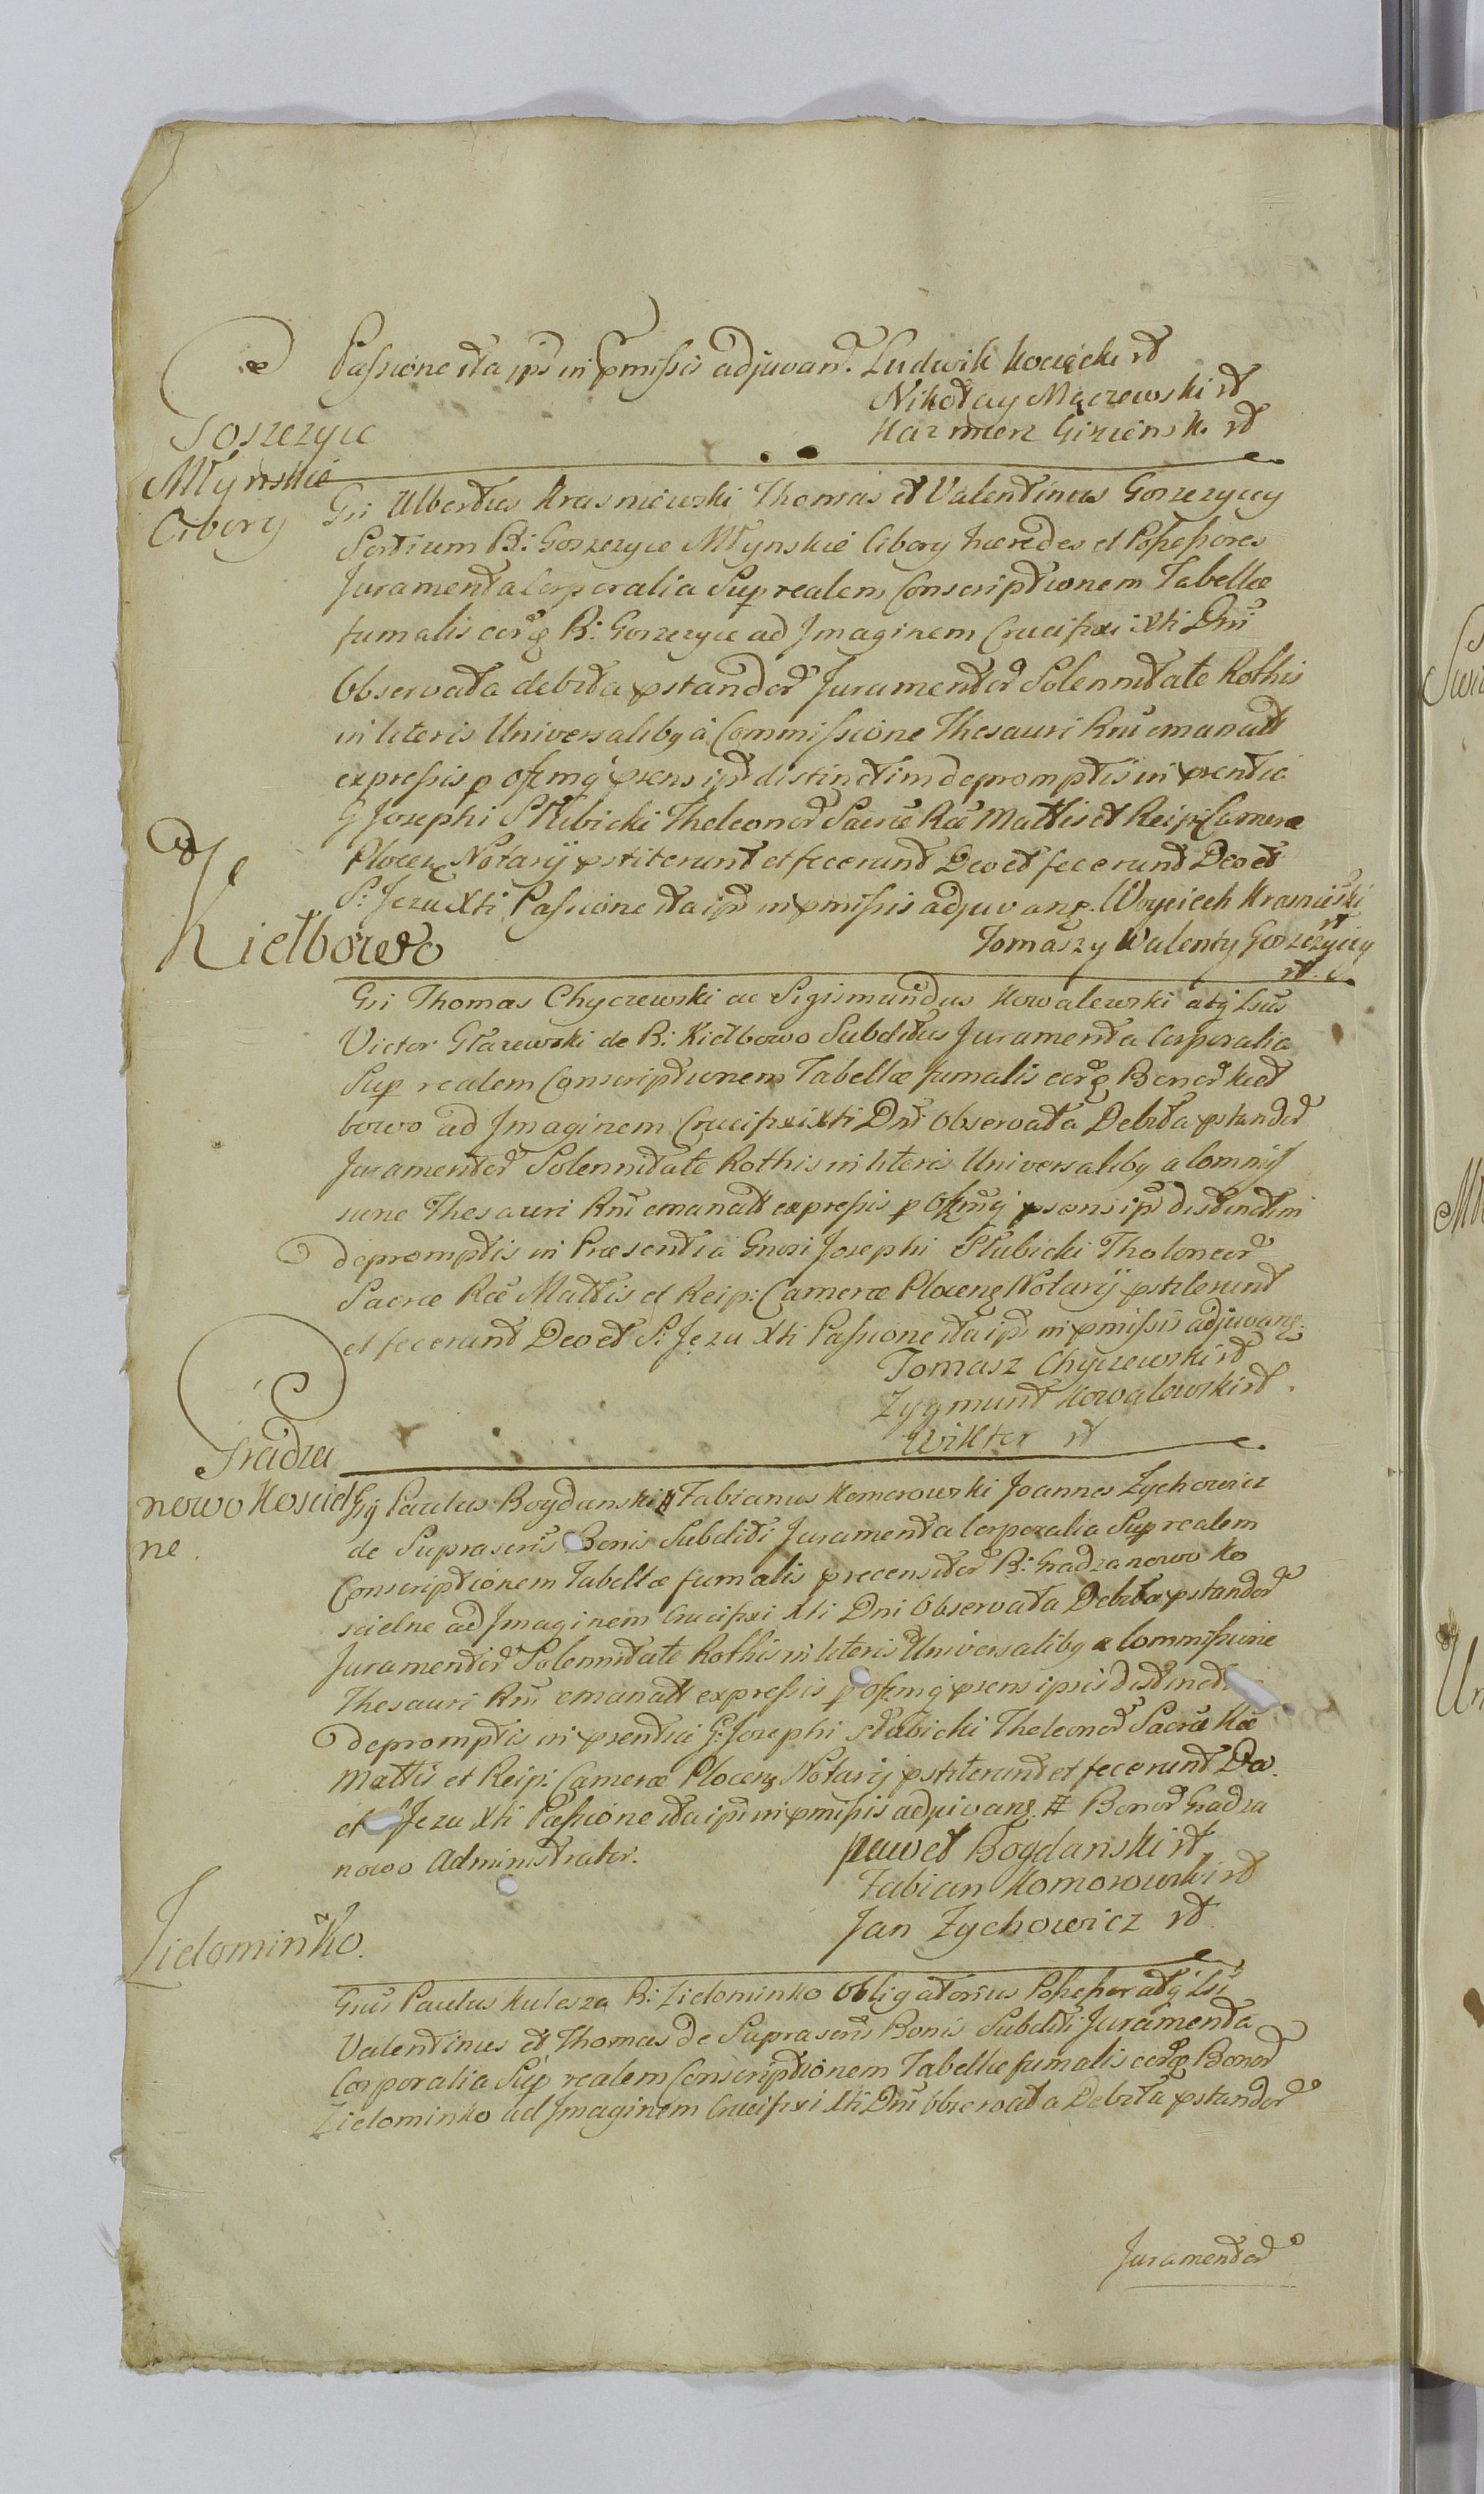 Passione ita ips in pmissis adjuvan. Ludwik Kocięcki rł
Nikołay Mączewski rł
Kazimierz rł
Goszczyce
Młynskie
Cibory
Gsi Albertus Krasniewski Thomas et Valentinus Goszczyccy
Sortium B: Goszczyce Młynskie Cibory hæredes et Possessores
Juramenta Corporalia Sup realem Conscriptionem Tabellæ
fumalis B: Goszczyce ad Imaginem Crucifixi Xti Dni
Observata debita pstandor Juramentor Solennitate Rothis
in literis Universaliby à Commissione Thesauri Rni emanatt
expressis p offmq psens ips distinctim depromptis in psentia
G Josephi Słubicki Theleonor Sacræ Ræ Mattis et Reip: Cameræ
Plocen Notarÿ pstiterunt et fecerunt Deo et fecerunt Deo et
S: Jezu Xti Passione ita ips in pmissis adjuvang. Woyciech Krasniewski rł
Tomasz y Walenty Goszczyccy
rł.
Kiełbowo
Gsi Thomas Chyczewski ac Sigismundus Kowalewski atq Lsus
Victor Głażewski de B: Kiełbowo Subditus Juramenta Corporalia
Sup realem Conscriptionem Tabellæ fumalis Bonor Kieł
bowo ad Imaginem Crucifixi Xti Dni Observata Debita pstandor
Juramentor Solennitate Rothis in literis Universaliby a Commiss
ione Thesauri Rni emanatt expressis p offmq psens ips distinctim
depromptis in Præsentia Gnosi Josephi Słubicki Tholoneor
Sacræ Ræ Mattis et Reip: Cameræ Plocen Notarÿ pstiterunt
et fecerunt Deo et S: Jezu Xti Passione ita ips in pmissis adjuvang.
Tomasz Chyczewski rł
Zygmunt Kowalewski rł.
Wikter rł
Gradza
nowo Kosciel
ne.
Gg Paulus Bogdanski # Fabianus Komorowski Joannes Zychowicz
de Suprascris Bonis Subditi Juramenta Corporalia Sup realem
Conscriptionem Tabellæ fumalis precensitor B: Gradzanowo Ko
scielne ad Imaginem Crucifixi Xti Dni Observata Debita pstandor
Juramentor Solennitate Rothis in literis Universaliby a Commissione
Thesauri Rni emanatt expressis p offmq psens ipsis distinct
depromptis in psentia G: Josephi Słubicki Theleonor Sacræ Ræ
Mattis et Reip: Cameræ Plocen Notarÿ pstiterunt et fecerunt Deo.
et Jezu Xti Passione ita ips in pmissis adjuvang. # Bonor Gradza
nowo Administrator.
Paweł Bogdanski rł
Fabian Komorowski rł
Jan Zychowicz rł
Zielominko.
Gnus Paulus Kulesza B: Zielominko Obligatorius Possessor atq Lsi
Valentinus et Thomas de Suprascris Bonis Subditi Juramenta
Corporalia Sup realem Conscriptionem Tabellæ fumalis Bonor
Zielominko ad Imaginem Crucifixi Xti Dni Observata Debita pstandor
Juramentor